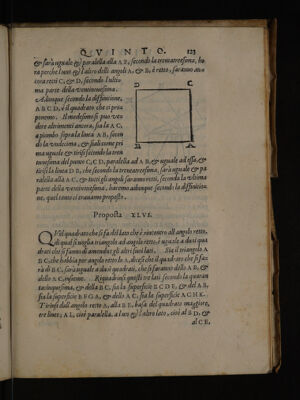 QVINTO. 123
& sarà uguale & paralella alla A B, secondo la trentatreesima, ho
ra perche l'uno & l'altro delli angoli A, & B, è retto, saranno an
cora retti C, & D, secondo l'ulti
ma parte della ventinouesima.
Adunque secondo la diffinitione,
A B C D, è il quadrato che ci pro
ponemo. Il medesimo si può ve
dere altrimenti ancora, sia la A C,
a piombo sopra la linea A B, secon
do la undecima, & sia li come pri
ma uguale & tirisi secondo la tren
tunesima dal punto C, C D, paralella ad A B & uguale ad essa, &
tirisi la linea D B, che secondo la trentatreesima, sarà uguale & pa
ralella alla A C, & tutti gli angoli saranno retti, secondo la ultima
parte della ventinouesima, haremo adunque secondo la diffinitio
ne, quel tanto ci erauamo proposto.
D C
B A
Proposta XLVI.
Quel quadrato che si fa del lato che è riuscontro all'angolo retto,
di qual si voglia triangolo ad angolo retto è uguale a duoi qua
drati che si fanno di amenduoi gli altri suoi lati. Sia il triangolo A
B C che habbia per angolo retto lo A, dico che il quadrato che si fa
rà di B C, sarà uguale a duoi quadrati, che si faranno dello A B, &
dello A C insieme. Faccisi questi secondo la quaran
tacinquesima, & della B C, sia la superficie B C D E, & del A B,
sia la superficie B F G A, & dello A C, sia la superficie A C H K.
Tirinsi dall'angolo retto A, alla B E, basa del quadrato maggiore,
tre linee, A L, cioè paralella a l'uno & l'altro lato, cioè al B D, &
al C E.